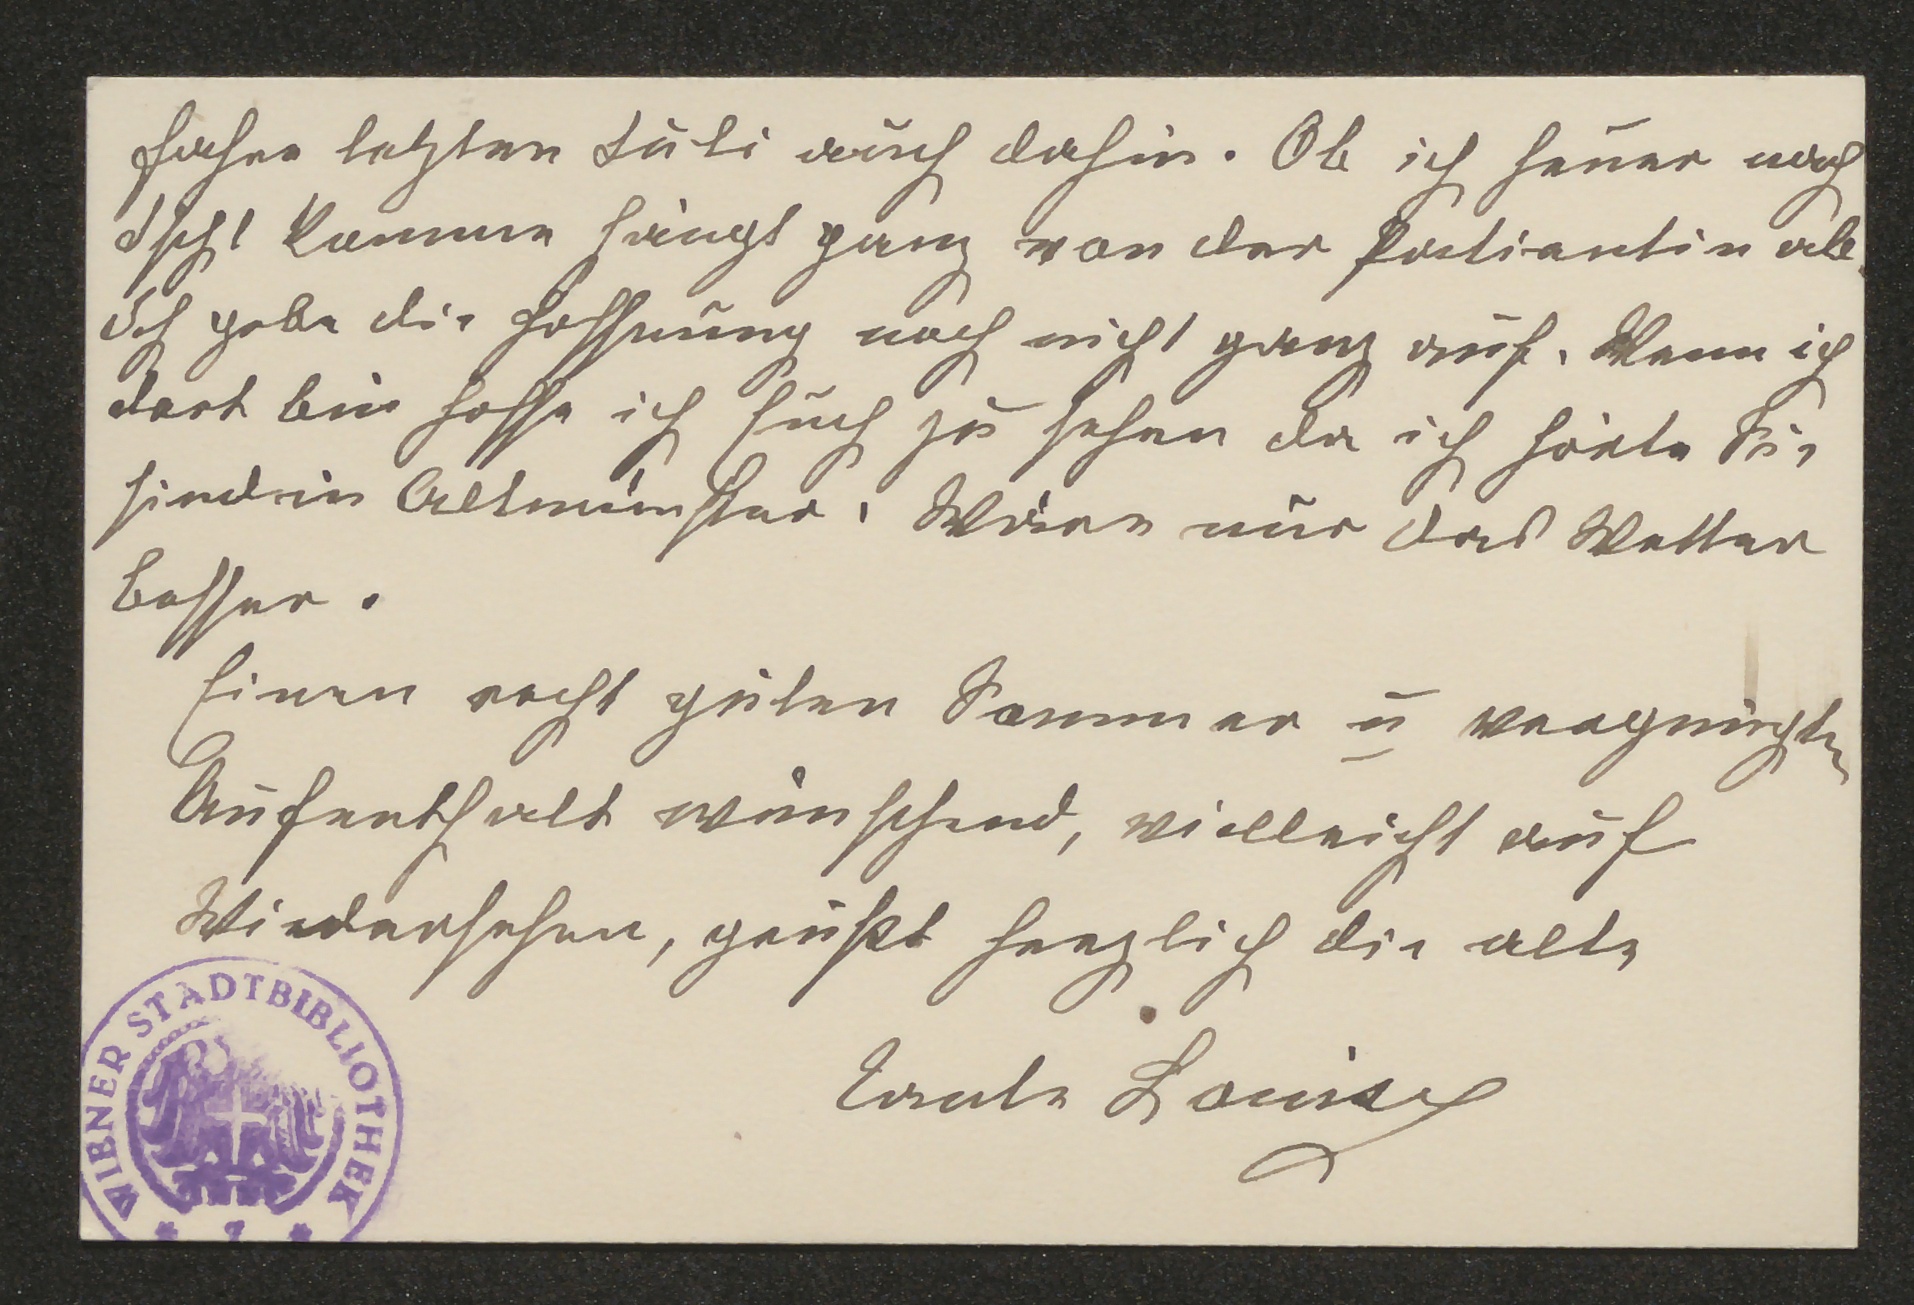 fahre letzten Juli auch dahin. Ob ich heuer nach
Ischl komme hängt ganz von der Patientin ab.
Ich gebe die Hoffnung noch nicht ganz auf. Wenn ich
dort bin hoffe ich Euch zu sehen da ich hörte Sie
sind in Altmünster. Wäre nur das Wetter
besser.
Einen recht guten Sommer u vergnügten
Aufenthalt wünschend, vielleicht auf
Wiedersehen, grüßt herzlich die alte
Tante Louise
WIENER STADTBIBLIOTHEK